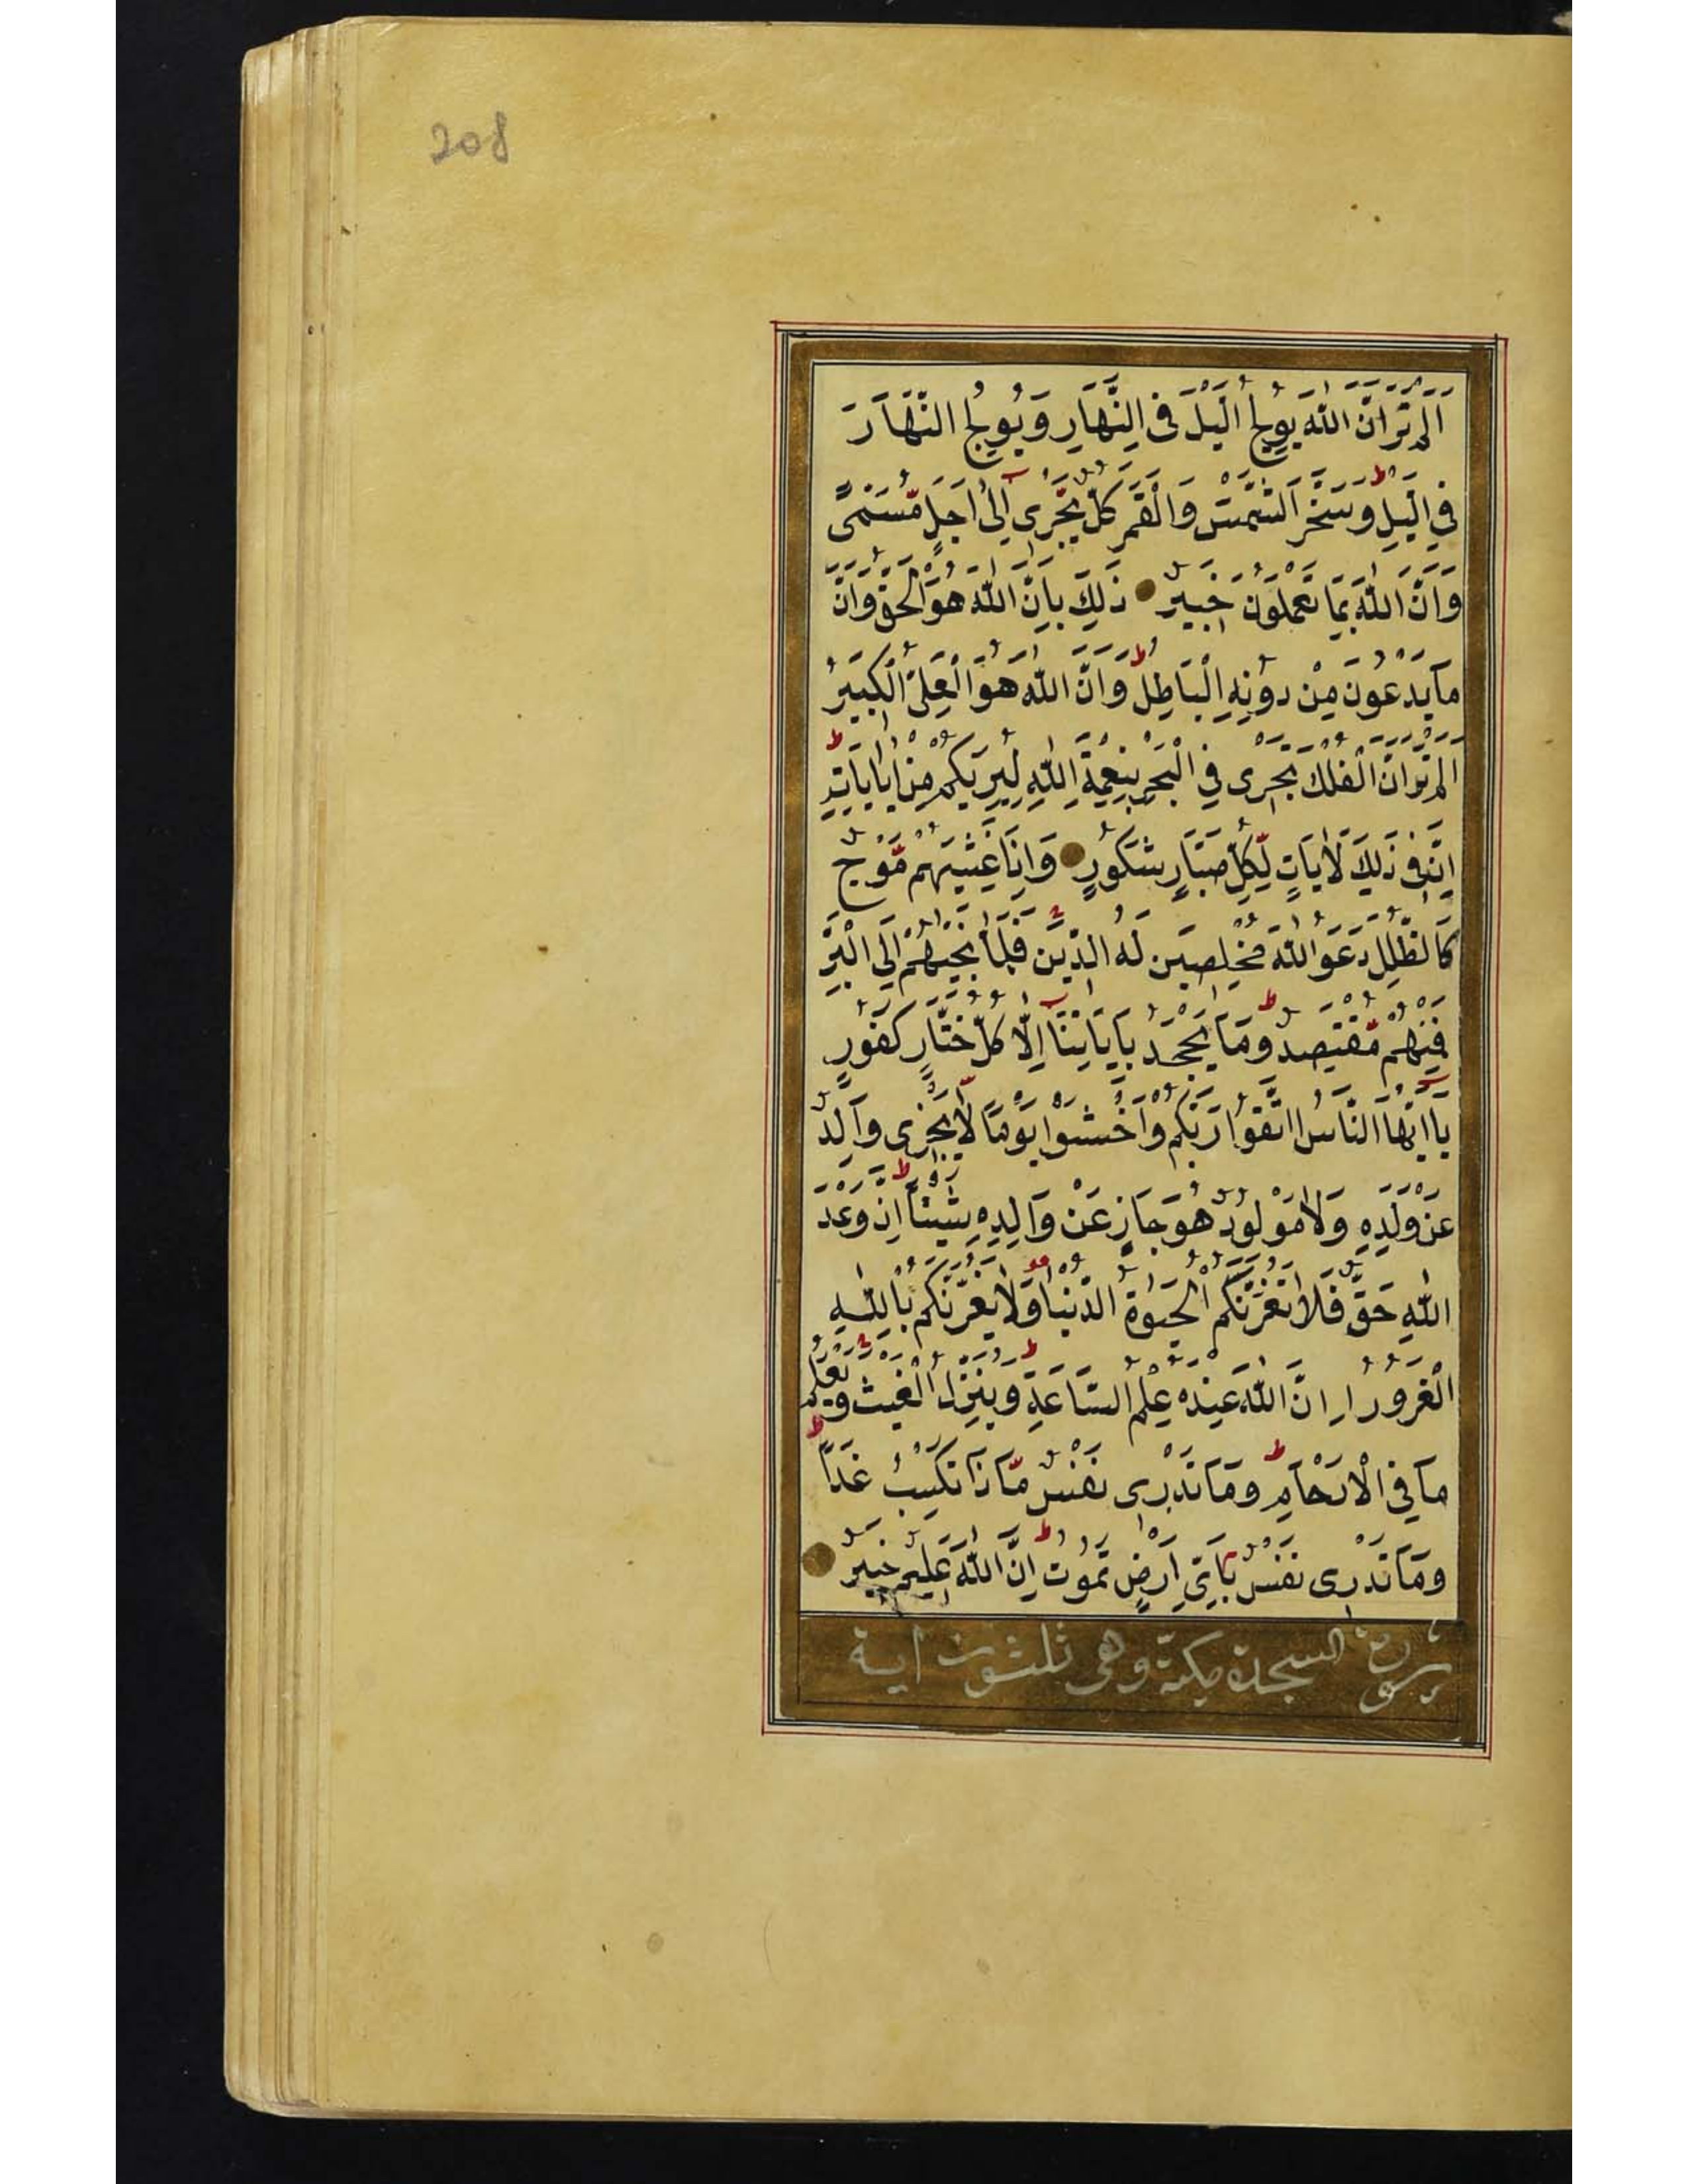 208
اَلَمْ تَرَ اَنَّ اللّٰهَ يُولِجُ الَّيْلَ فِى النَّهَارِ وَيُولِجُ النَّهَارَ
فِى الَّيْلِ وَسَخَّرَ الشَّمْسَ وَالْقَمَرَ كُلٌّ يَجْرٖى اِلٰى اَجَلٍ مُّسَمًّى
وَاَنَّ اللّٰهَ بِمَا تَعْمَلُونَ خَبِيرٌ ذٰلِكَ بِاَنَّ اللّٰهَ هُوَ الْحَقُّ وَاَنَّ
مَا يَدْعُونَ مِنْ دُونِهِ الْبَاطِلُ وَاَنَّ اللّٰهَ هُوَ الْعَلِىُّ الْكَبِيرُ
اَلَمْ تَرَ اَنَّ الْفُلْكَ تَجْرٖى فِى الْبَحْرِ بِنِعْمَةِ اللّٰهِ لِيُرِيَكُمْ مِنْ اٰيَاتِهِ
اِنَّ فِى ذٰلِكَ لَاٰيَاتٍ لِّكُلِّ صَبَّارٍ شَكُورٍ وَاِذَا غَشِيَهُمْ مَّوْجٌ
كَالظُّلَلِ دَعَوُا اللّٰهَ مُخْلِصِينَ لَهُ الدِّينَ فَلَمَّا نَجّٰيهُمْ اِلَى الْبَرِّ
فَمِنْهُمْ مُّقْتَصِدٌ وَمَا يَجْحَدُ بِاٰيَاتِنَا اِلَّا كُلُّ خَتَّارٍ كَفُورٍ
يَا اَيُّهَا النَّاسُ اتَّقُوا رَبَّكُمْ وَاخْشَوْا يَوْمًا لَّا يَجْزٖى وَالِدٌ
عَنْ وَلَدِهٖ وَلَا مَوْلُودٌ هُوَ جَازٍ عَنْ وَالِدِهٖ شَيْئًا اِنَّ وَعْدَ
اللّٰهِ حَقٌّ فَلَا تَغُرَّنَّكُمُ الْحَيٰوةُ الدُّنْيَا وَلَا يَغُرَّنَّكُمْ بِاللّٰهِ
الْغَرُورُ اِنَّ اللّٰهَ عِنْدَهُ عِلْمُ السَّاعَةِ وَيُنَزِّلُ الْغَيْثَ وَيَعْلَمُ
مَا فِى الْاَرْحَامِ وَمَا تَدْرٖى نَفْسٌ مَّاذَا تَكْسِبُ غَدًا
وَمَا تَدْرٖى نَفْسٌ بِاَىِّ اَرْضٍ تَمُوتُ اِنَّ اللّٰهَ عَلِيمٌ خَبِيرٌ
سورة السجدة مكية وهى ثلثون اية